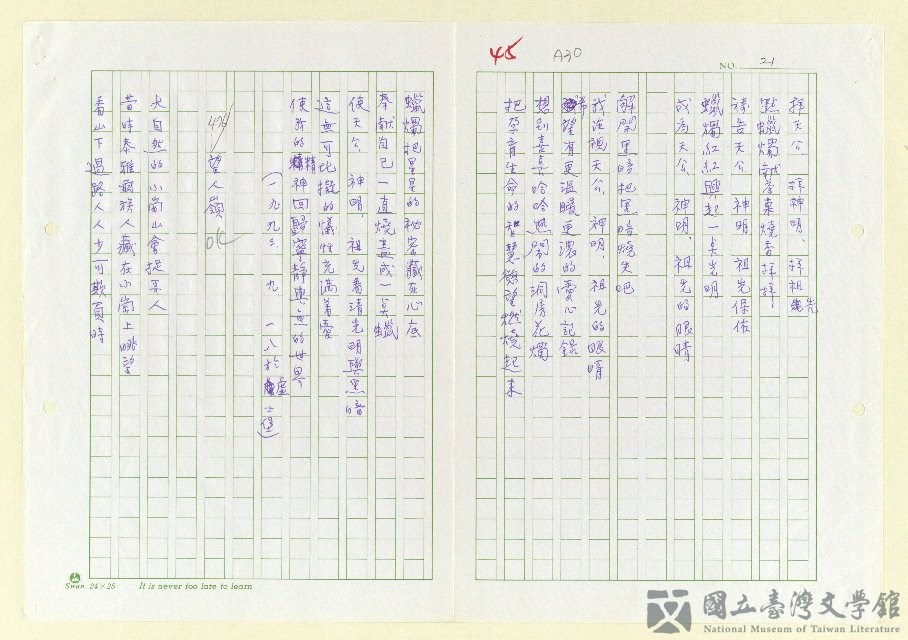 45
A30
NO. 21
拜天公、拜神明、拜祖先
點蠟燭誠著桌燒香拜拜
禱告天公、神明、祖先保佑
蠟燭紅紅興起一点光明
成為天公、神明、祖先的眼睛
解開黑暗把黑暗燒失吧
我注視天公、神明、祖先的眼睛
希望有更溫暖更濃的愛心記錄
想到喜氣哈哈熱鬧的洞房花燭
把孕育生命的智慧慾望燃燒起來
蠟燭把星星的秘密藏在心底
奉獻自己一直燒盡成一点蠟
使天公、神明、祖先看清光明與黑暗
這無可比擬的犧牲充滿著愛
使我的精神回歸寧靜與無的世界
(一九九三、九、一八於盧士堡)
46/
望人嶺
OK
大自然的小崗山會捉某人
昔時泰雅族人藏在小崗上眺望
看山下過路人人少可欺負時
SHHH 24×25
It is never too late to learn
國立臺灣文學館
National Museum of Taiwan Literature